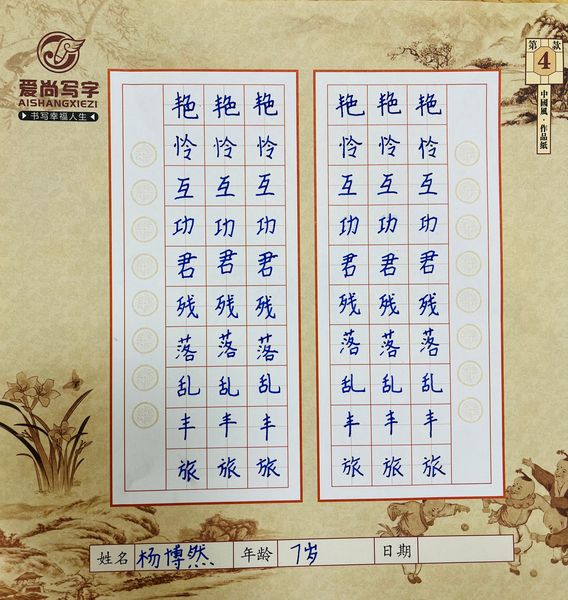 爱尚写字
AISHANGXIEZI
书写幸福人生
第4款
中國風·作品紙
艳艳艳 艳艳艳
怜怜怜 怜怜怜
互互互 互互互
功功功 功功功
君君君 君君君
残残残 残残残
落落落 落落落
乱乱乱 乱乱乱
丰丰丰 丰丰丰
旅旅旅 旅旅旅
姓名 杨博然 年龄 7岁 日期